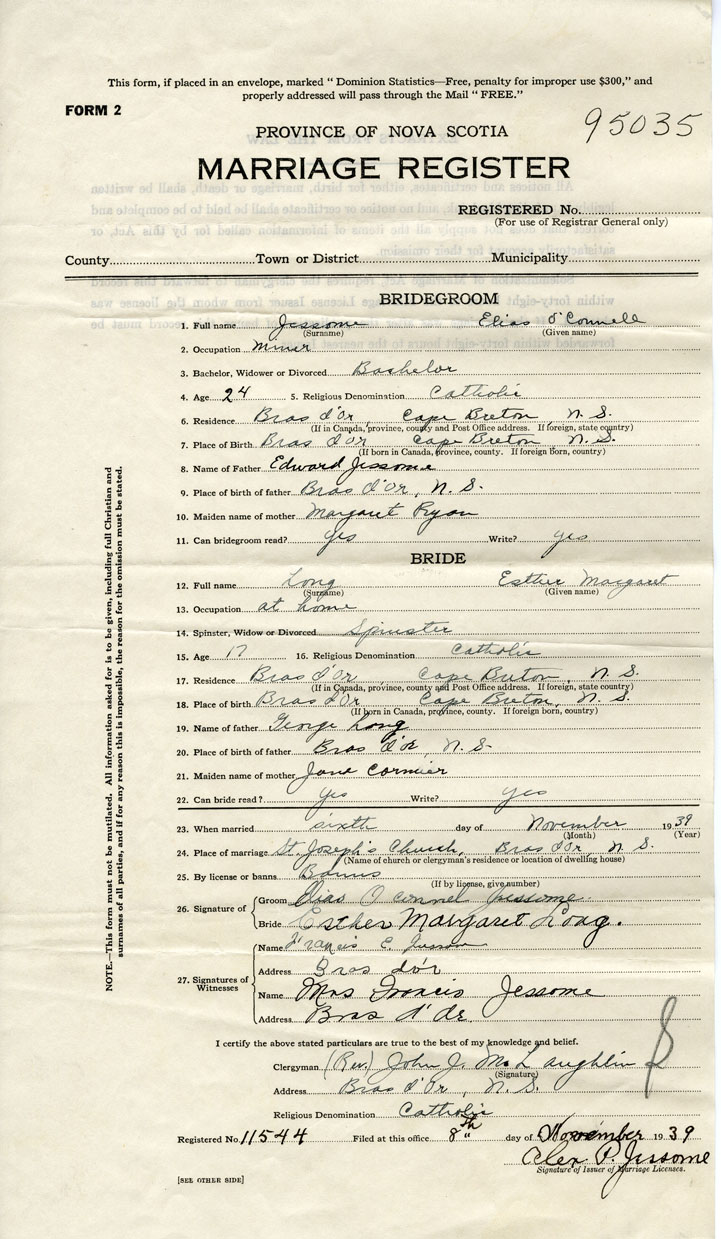 This form, if placed in an envelope, marked " Dominion Statistics—Free, penalty for improper use $300," and
properly addressed will pass through the Mail " FREE."
FORM 2
95035
PROVINCE OF NOVA SCOTIA
MARRIAGE REGISTER
REGISTERED No.
(For use of Registrar General only)
County Town or District Municipality
BRIDEGROOM
1. Full name Jessome Elias O'Connell
(Surname) (Given name)
2. Occupation Miner
3. Bachelor, Widower or Divorced Bachelor
4. Age 24 5. Religious Denomination Catholic
6. Residence Bras d'Or, Cape Breton, N. S.
(If in Canada, province, county and Post Office address. If foreign, state country)
7. Place of Birth Bras d'Or Cape Breton N. S.
(If born in Canada, province, county. If foreign Born, country)
8. Name of Father Edward Jessome
9. Place of birth of father Bras d'Or, N. S.
10. Maiden name of mother Margaret Ryan
11. Can bridegroom read? yes Write? yes
BRIDE
12. Full name Long Esther Margaret
(Surname) (Given name)
13. Occupation at home
14. Spinster, Widow or Divorced Spinster
15. Age 17 16. Religious Denomination Catholic
17. Residence Bras d'Or Cape Breton, N. S.
(If in Canada, province, county and Post Office address. If foreign, state country)
18. Place of birth Bras d'Or Cape Breton, N. S.
(If born in Canada, province, county. If foreign born, country)
19. Name of father George Long
20. Place of birth of father Bras d'Or, N. S.
21. Maiden name of mother Jane Cormier
22. Can bride read? yes Write? yes
23. When married sixth day of November 1939
(Month) (Year)
24. Place of marriage St. Joseph's Church, Bras d'Or, N. S.
(Name of church or clergyman's residence or location of dwelling house)
25. By license or banns Banns
(If by license, give number)
26. Signature of
Groom Elias O'connel Jessome
Bride Esther Margaret Long.
27. Signatures of Witnesses
Name Francis E. Jessome
Address Bras d'or
Name Mrs Francis Jessome
Address Bras d'Or
I certify the above stated particulars are true to the best of my knowledge and belief.
Clergyman (Rev.) John J. McLaughlin
(Signature)
Address Bras d'Or, N. S.
Religious Denomination Catholic
Registered No. 11544 Filed at this office 8th day of November 1939
Alex P. Jessome
Signature of Issuer of Marriage Licenses.
[SEE OTHER SIDE]
NOTE.—This form must not be mutilated. All information asked for is to be given, including full Christian and
surnames of all parties, and if for any reason this is impossible, the reason for the omission must be stated.